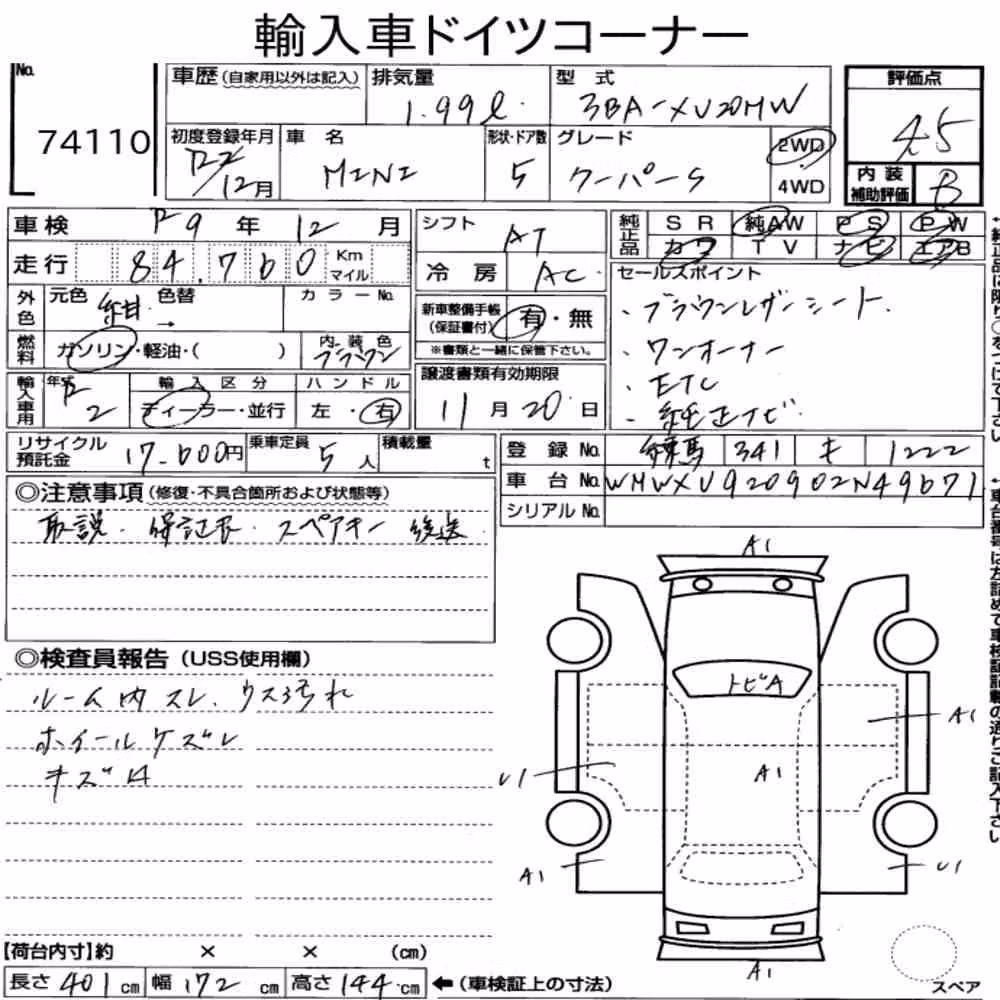 輸入車ドイツコーナー
No. 74110
車歴 (自家用以外は記入) 排気量 1.99ℓ 型式 3BA-XU20MW
評価点 4.5
初度登録年月 R2/12月 車名 MINI 形状・ドア数 5 グレード クーパーS 2WD 4WD
内装補助評価 B
車検 R9年12月
走行 84.760 Km マイル
シフト AT
冷房 AC
純正品 SR 純AW PS PW
カワ TV ナビ エアB
外色 元色 紺 色替 → カラーNo.
燃料 ガソリン・軽油・( ) 内装色 ブラウン
新車整備手帳(保証書付) 有・無
※書類と一緒に保管下さい。
セールスポイント
・ブラウンレザーシート.
・ワンオーナー
・ETC
・純正ナビ
輸入車用 年式 R2 輸入区分 ディーラー・並行 ハンドル 左・右
譲渡書類有効期限 11月20日
リサイクル預託金 17.600円 乗車定員 5人 積載量 t
登録No. 練馬 341 キ 1222
車台No. WMWXU920902N49671
シリアルNo.
◎注意事項 (修復・不具合箇所および状態等)
取説・保証書・スペアキー 後送
◎検査員報告 (USS使用欄)
ルーム内スレ、ウスヨゴレ
ホイールケズレ
キズ
A1
トビA
A1
U1
A1
A1
U1
A1
スペア
【荷台内寸】約 × × (cm)
長さ 401cm 幅 172cm 高さ 144cm ←(車検証上の寸法)
↑純正品に限り○をつけて下さい
↑車台番号は左詰めで車検証記載の通りご記入下さい